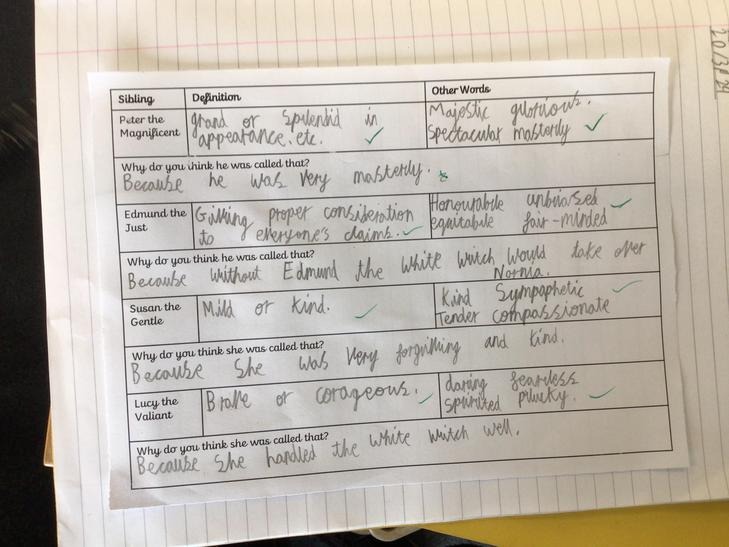 20/3F
Sibling Definition Other Words
Peter the Magnificent
grand or splendid in
appearance. etc.
Majestic glorious.
Spectacular masterly
Why do you think he was called that?
Because he was very masterly.
Edmund the Just
Giving proper consideration
to everyone's claims.
Honourable unbiased
equitabile fair-minded
Why do you think he was called that?
Because without Edmund the White Witch Would take over
Nornia.
Susan the Gentle
Mild or Kind.
Kind Sympaphetic
Tender compassionate
Why do you think she was called that?
Because She was very forgiving and kind.
Lucy the Valiant
Brave or corageous.
daring fearless
spirited plucky.
Why do you think she was called that?
Because She handled the white witch well.